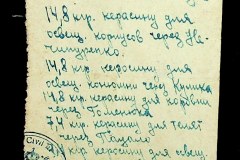 14,8 кгр. керасину для
освещ. корпусов через Не-
чипуренко.
14,8 кгр. керосину для
освещ. конюшни через Куника
14,8 кгр. керасину для коровни
через Гоменюка
74 кгр. керасину для телят
через
кгр керосину для освещ.
Civil